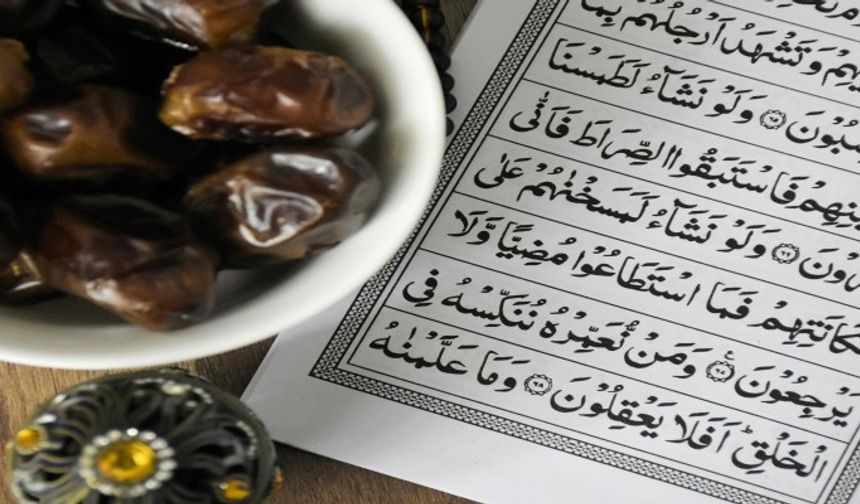 وَتَشْهَدُ اَرْجُلُهُمْ بِمَا
۝٦٥ وَلَوْ نَشَآءُ لَطَمَسْنَا
فَاسْتَبَقُوا الصِّرَاطَ فَاَنّٰى
۝٦٦ وَلَوْ نَشَآءُ لَمَسَخْنٰهُمْ عَلٰى
مَكَانَتِهِمْ فَمَا اسْتَطَاعُوْا مُضِيًّا وَّلَا
يَرْجِعُوْنَ ۝٦٧ وَمَنْ نُّعَمِّرْهُ نُنَكِّسْهُ فِى
الْخَلْقِ ؕ اَفَلَا يَعْقِلُوْنَ ۝٦٨ وَمَا عَلَّمْنٰهُ